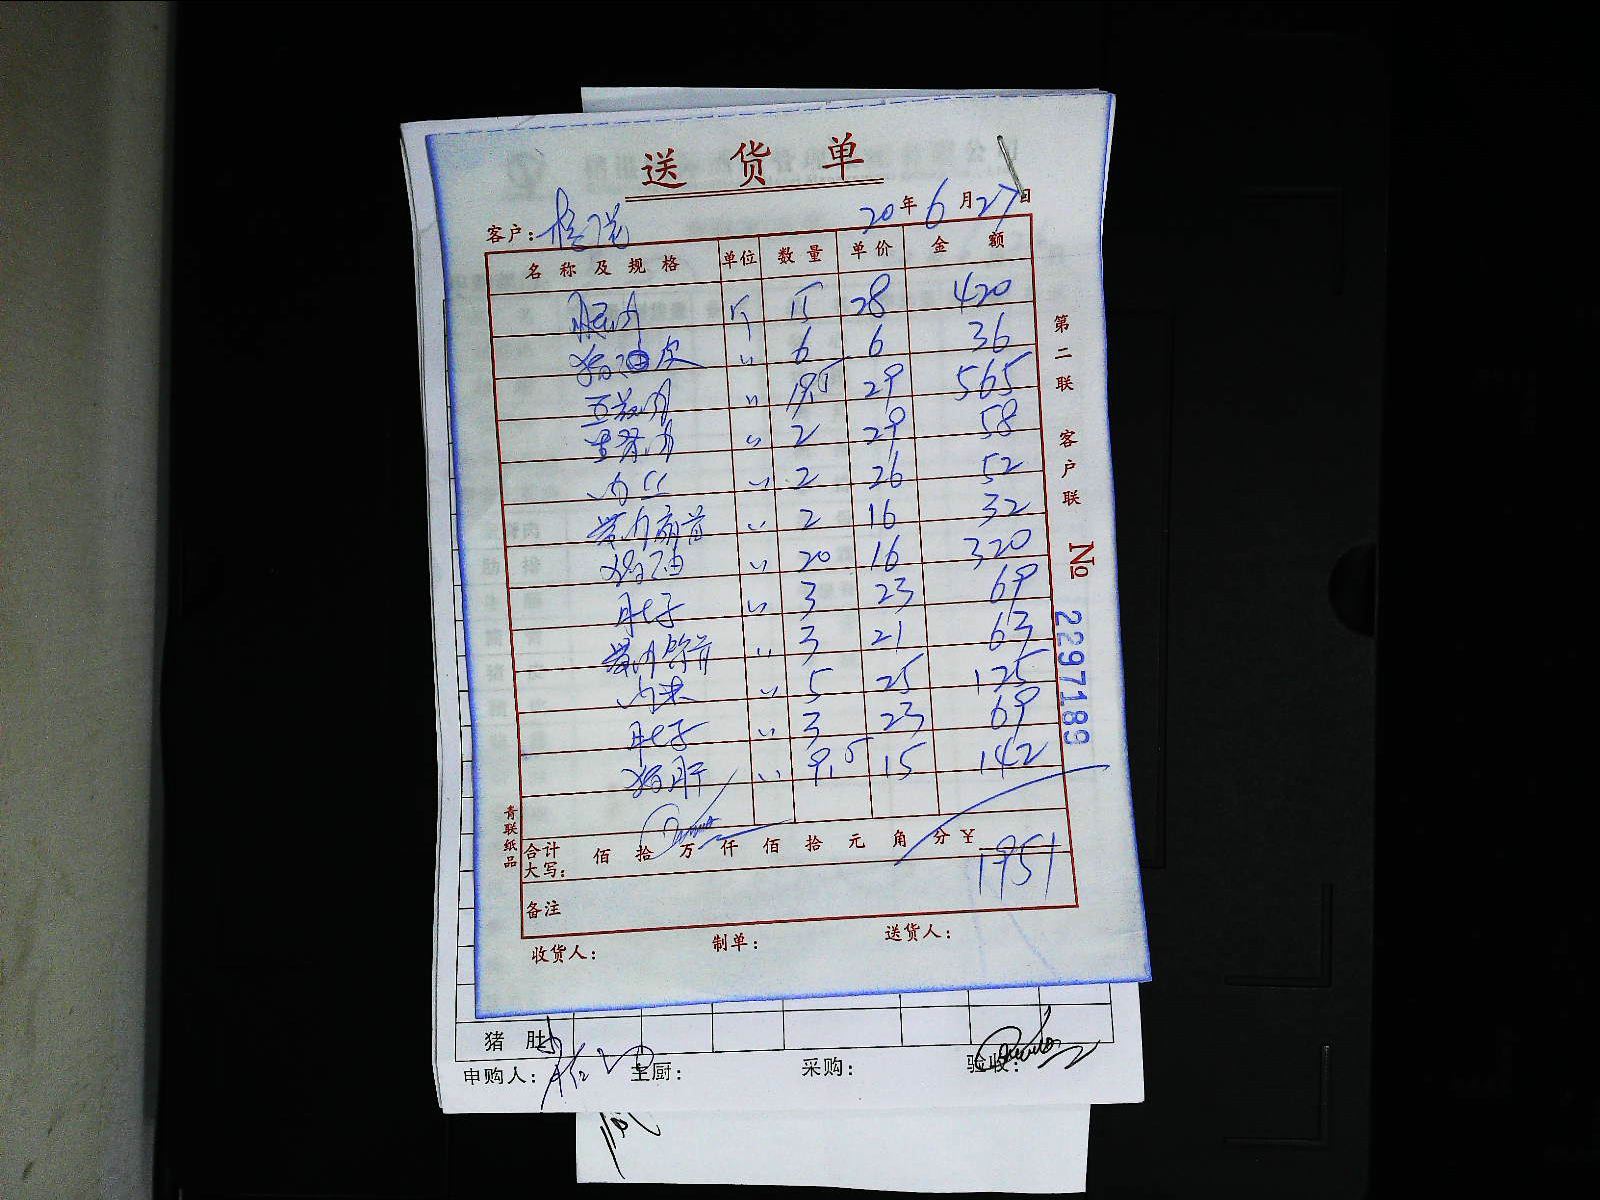 送货单
客户: 20年6月27日
名称及规格 单位 数量 单价 金额
肥肉 斤 15 28 420
猪油皮 〃 6 6 36
五花肉 〃 19.5 29 565
里脊肉 〃 2 29 58
肉丝 〃 2 26 52
带肉扇骨 〃 2 16 32
猪油 〃 20 16 320
肚子 〃 3 23 69
带肉筒骨 〃 3 21 63
肉末 〃 5 25 125
肚子 〃 3 23 69
猪肝 〃 9.5 15 142
合计大写: 佰 拾 万 仟 佰 拾 元 角 分 ¥ 1951
备注
收货人: 制单: 送货人:
第二联 客户联 № 2297189
青联纸品
猪肚
申购人: 主厨: 采购: 验收: